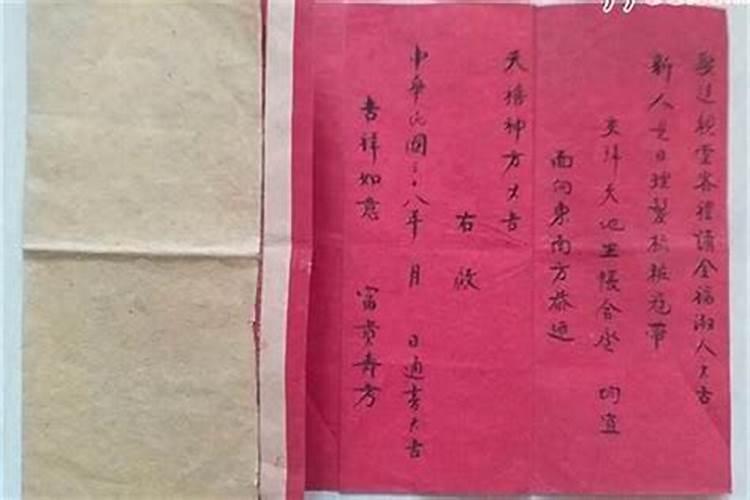 娶送親雲客禮請全福淑人大吉
新人是日理髮梳粧冠帶
交拜天地坐帳合卺 均宜
面向東南方恭迎
天禧神方大吉
右啟
中華民國三十八年 月 日通書大吉
吉祥如意 富貴壽方